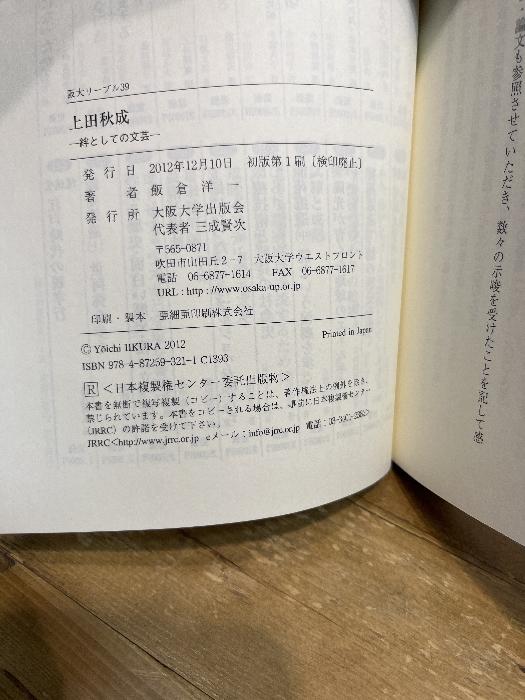 阪大リーブル39
上田秋成
―絆としての文芸―
発行日 2012年12月10日 初版第1刷〔検印廃止〕
著者 飯倉洋一
発行所 大阪大学出版会
代表者 三成賢次
〒565-0871
吹田市山田丘2-7 大阪大学ウエストフロント
電話 06-6877-1614 FAX 06-6877-1617
URL : http://www.osaka-up.or.jp
印刷・製本 亜細亜印刷株式会社
© Yōichi IIKURA 2012
Printed in Japan
ISBN 978-4-87259-321-1 C1393
R <日本複製権センター委託出版物>
本書を無断で複写複製(コピー)することは、著作権法上の例外を除き、
禁じられています。本書をコピーされる場合は、事前に日本複製権センター
(JRRC)の許諾を受けて下さい。
JRRC<http://www.jrrc.or.jp eメール:info@jrrc.or.jp 電話:03-3401-2382>
論文も参照させていただき、数々の示唆を受けたことを記して感